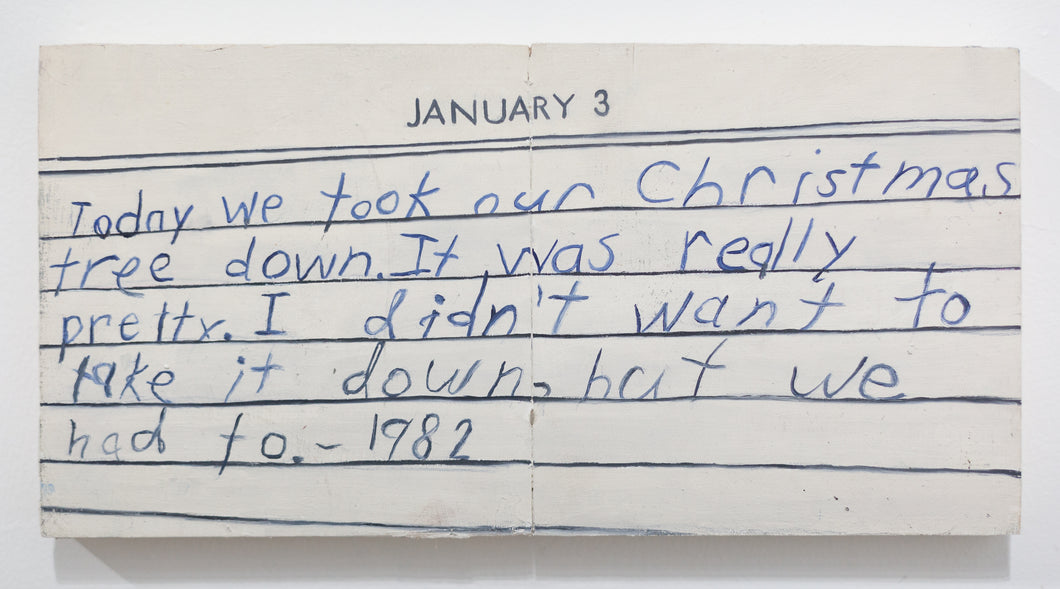 JANUARY 3
Today we took our Christmas
tree down. It was really
pretty. I didn't want to
take it down, but we
had to. - 1982